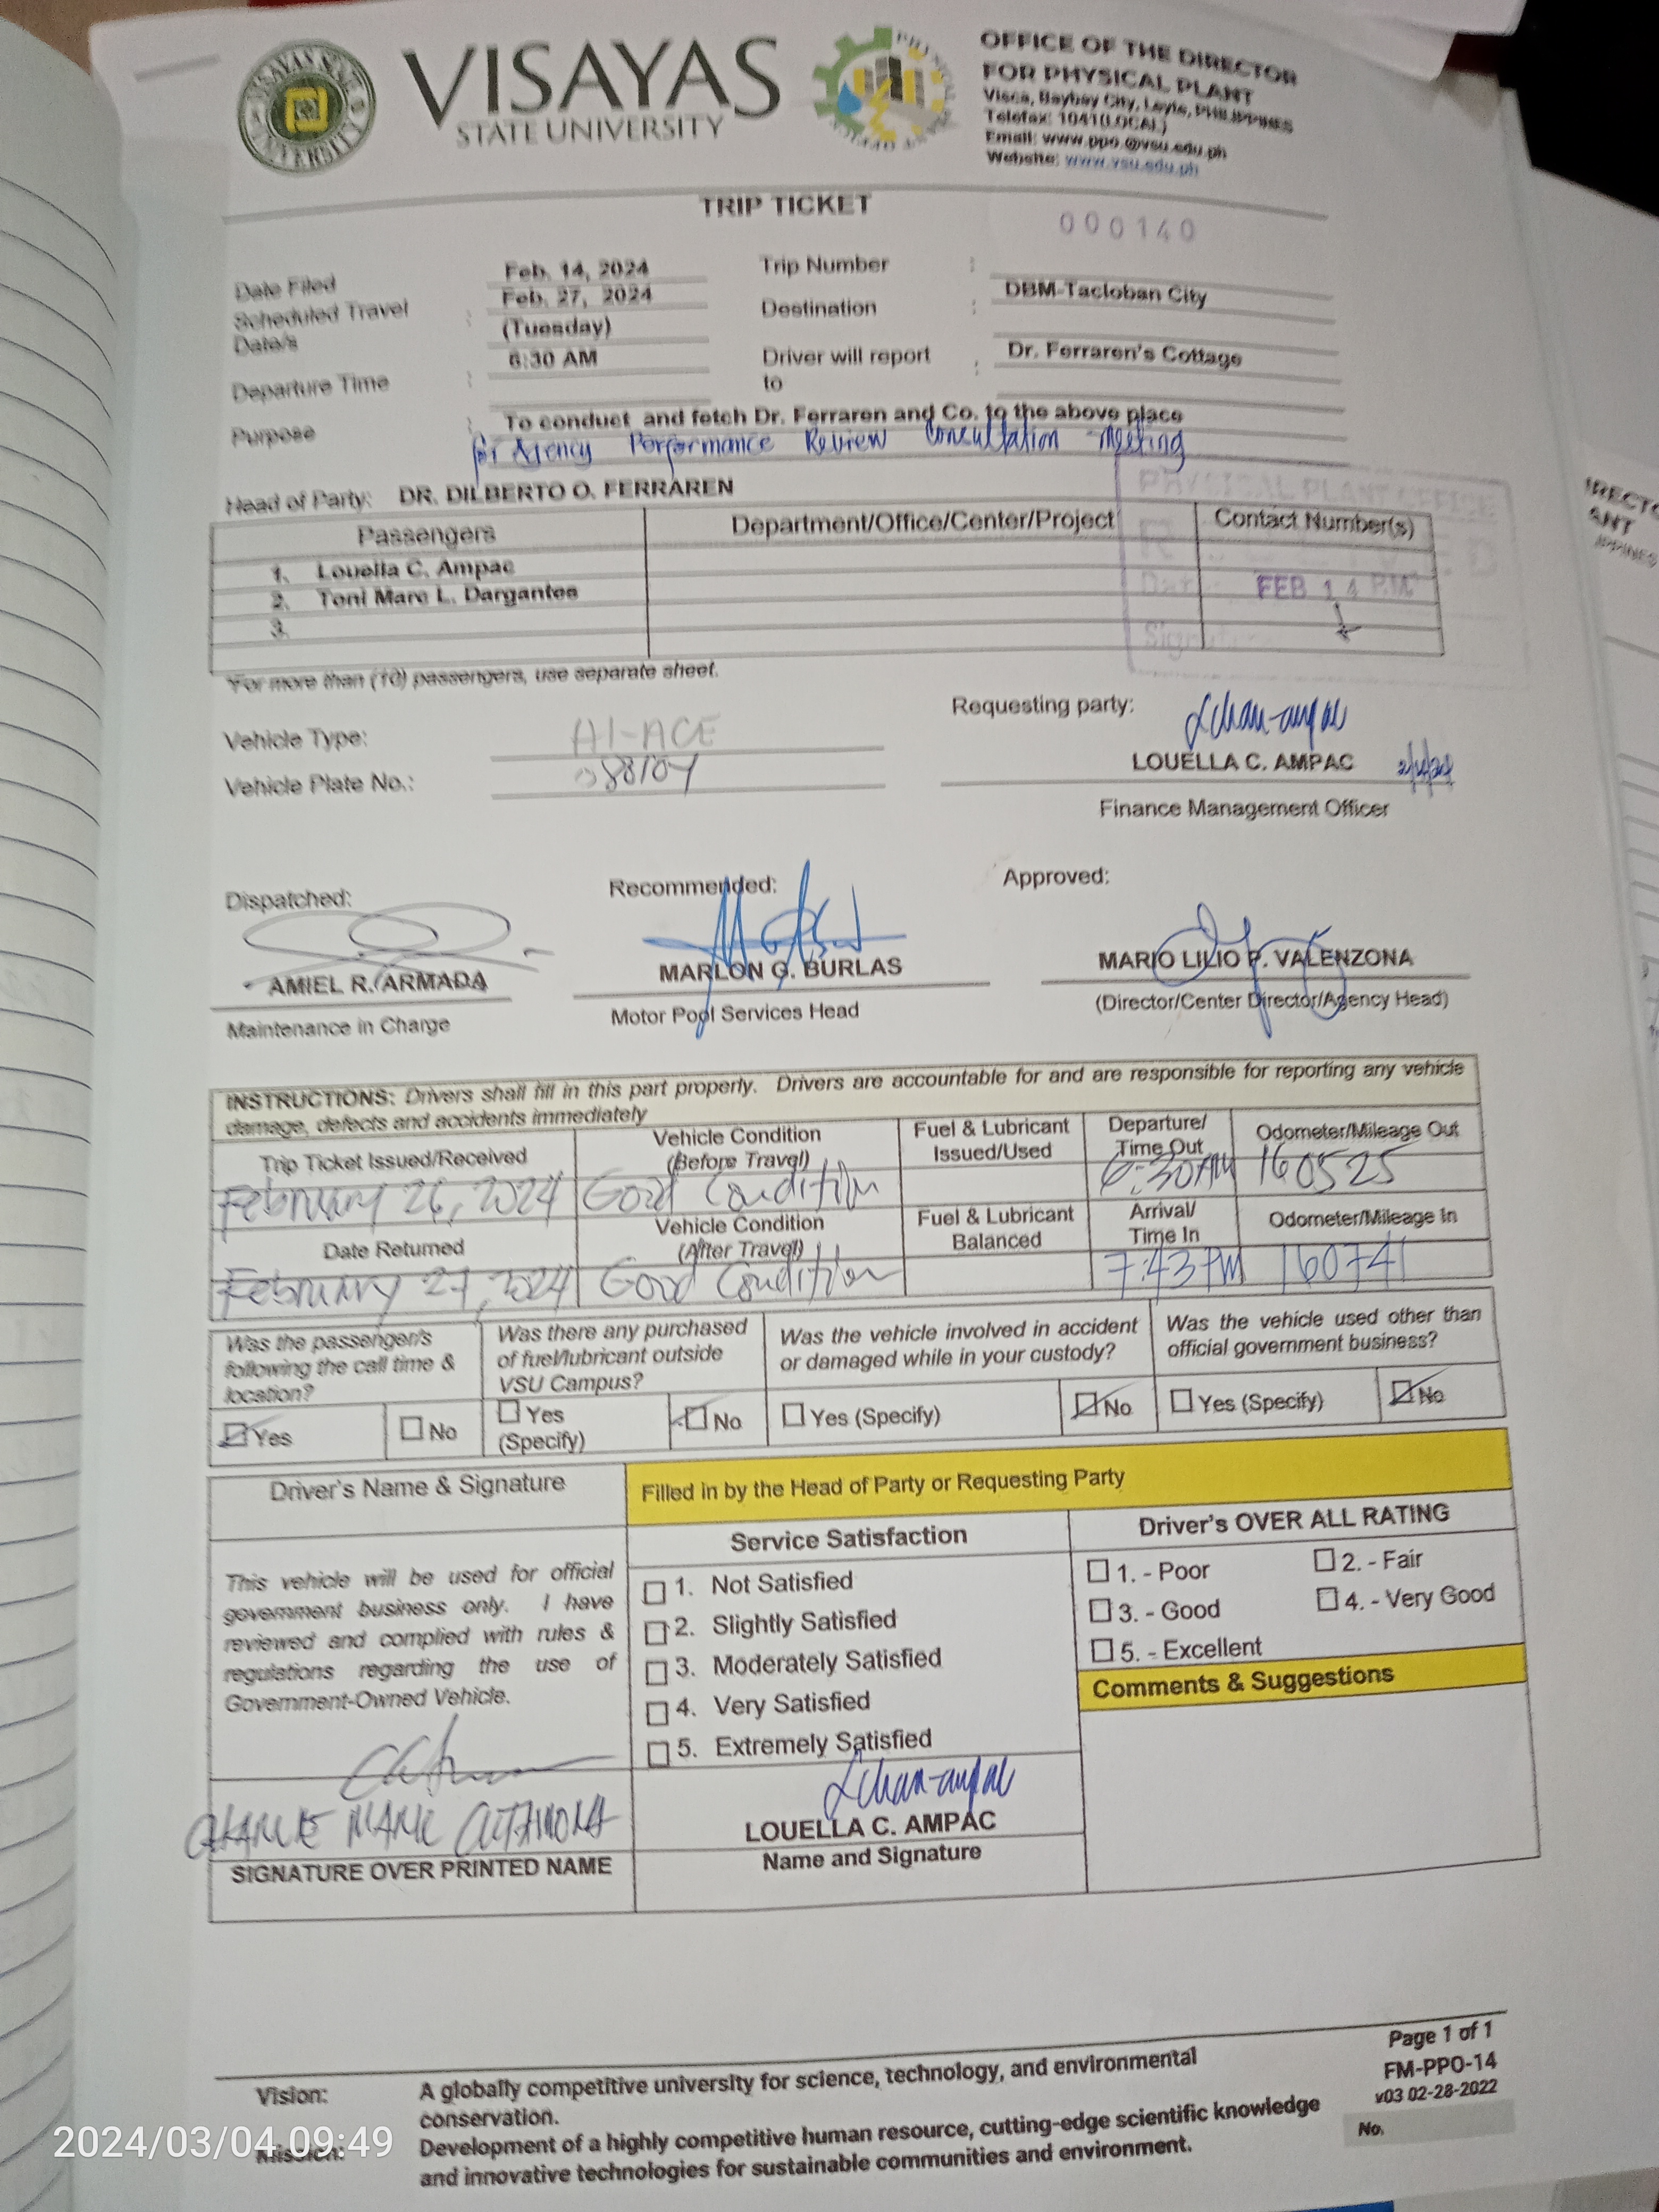 VISAYAS STATE UNIVERSITY
VISAYAS
STATE UNIVERSITY
OFFICE OF THE DIRECTOR
FOR PHYSICAL PLANT
Visca, Baybay City, Leyte, PHILIPPINES
Telefax: 1041(LOCAL)
Email: www.ppo.@vsu.edu.ph
Website: www.vsu.edu.ph
TRIP TICKET
000140
Date Filed Feb. 14, 2024 Trip Number :
Scheduled Travel Date/s : Feb. 27, 2024 (Tuesday) Destination : DBM-Tacloban City
Departure Time : 6:30 AM Driver will report to : Dr. Ferraren's Cottage
Purpose : To conduct and fetch Dr. Ferraren and Co. to the above place
for Agency Performance Review Consultation Meeting
Head of Party: DR. DILBERTO O. FERRAREN
Passengers Department/Office/Center/Project Contact Number(s)
1. Louella C. Ampac
2. Toni Marc L. Dargantes
3.
PHYSICAL PLANT OFFICE
RECEIVED
Date: FEB 14 P.M.
*For more than (10) passengers, use separate sheet.
Requesting party:
Vehicle Type: HI-ACE
Vehicle Plate No.:
LOUELLA C. AMPAC
Finance Management Officer
Dispatched: Recommended: Approved:
AMIEL R. ARMADA MARLON G. BURLAS MARIO LILIO P. VALENZONA
Maintenance in Charge Motor Pool Services Head (Director/Center Director/Agency Head)
INSTRUCTIONS: Drivers shall fill in this part properly. Drivers are accountable for and are responsible for reporting any vehicle
damage, defects and accidents immediately
Trip Ticket Issued/Received Vehicle Condition (Before Travel) Fuel & Lubricant Issued/Used Departure/ Time Out Odometer/Mileage Out
February 26, 2024 Good Condition 6:30AM 160525
Date Returned Vehicle Condition (After Travel) Fuel & Lubricant Balanced Arrival/ Time In Odometer/Mileage In
February 27, 2024 Good Condition 7:43PM 160741
Was the passenger/s following the call time & location? Was there any purchased of fuel/lubricant outside VSU Campus? Was the vehicle involved in accident or damaged while in your custody? Was the vehicle used other than official government business?
Yes No Yes (Specify) No Yes (Specify) No Yes (Specify) No
Driver's Name & Signature Filled in by the Head of Party or Requesting Party
Service Satisfaction Driver's OVER ALL RATING
This vehicle will be used for official
government business only. I have
reviewed and complied with rules &
regulations regarding the use of
Government-Owned Vehicle.
1. Not Satisfied
2. Slightly Satisfied
3. Moderately Satisfied
4. Very Satisfied
5. Extremely Satisfied
1. - Poor 2. - Fair
3. - Good 4. - Very Good
5. - Excellent
Comments & Suggestions
LOUELLA C. AMPAC
SIGNATURE OVER PRINTED NAME Name and Signature
Vision: A globally competitive university for science, technology, and environmental
conservation.
Mission: Development of a highly competitive human resource, cutting-edge scientific knowledge
and innovative technologies for sustainable communities and environment.
Page 1 of 1
FM-PPO-14
v03 02-28-2022
No.
2024/03/04 09:49